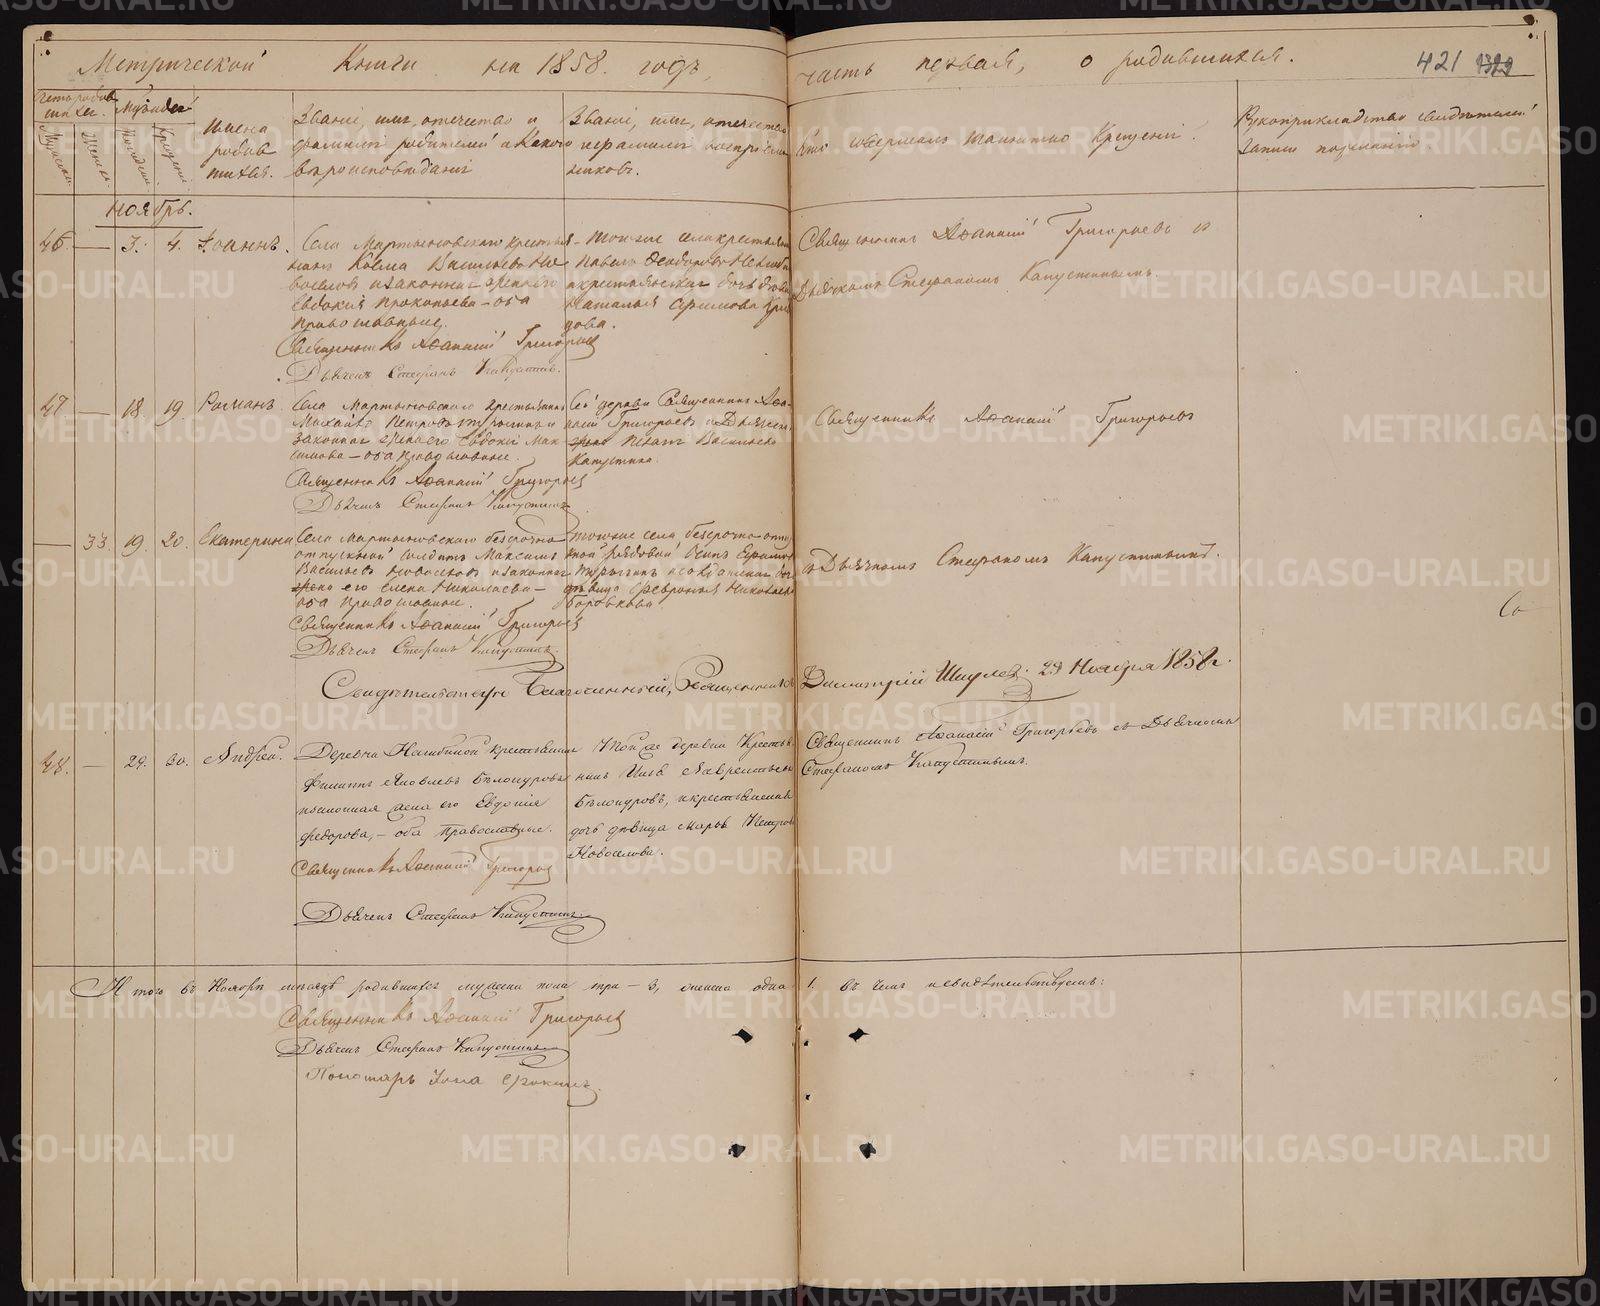 Метрической Книги на 1858. годъ, часть первая, о родившихся.
421
Счетъ родившихся.
Мужеска.
Женска.
Рожденія.
Крещенія.
Имена родившихся.
Званіе, имя, отчество и
фамилія родителей и какого
вѣроисповѣданія
Званіе, имя, отчество
и фамилія воспріемниковъ.
Кто совершалъ таинство Крещенія.
Рукоприкладство свидѣтелей
записи по желанію
Ноябрь.
46. — 3. 4. Іоаннъ.
Села Мартыновскаго крестьянинъ
Козма Васильевъ
и законная жена его
Евдокия Прокопьева – оба
православные.
Священникъ Афанасій Григорьевъ
Дьячекъ Стефанъ Капустинъ.
Того же села крестьянинъ
Павелъ Феодоровъ
и крестьянская дочь девица
Наталья Ефимова
Священникъ Афанасій Григорьевъ съ
Дьячкомъ Стефаномъ Капустинымъ
47 — 18. 19. Романъ
Села Мартыновскаго крестьянинъ
Михайло Петровъ и
законная жена его Евдокия Максимова – оба православные.
Священникъ Афанасій Григорьевъ
Дьячекъ Стефанъ Капустинъ
Сей церкви Священникъ Афанасій Григорьевъ и Дьяческая
жена Васильева
Капустина.
Священникъ Афанасій Григорьевъ
— 33. 19. 20. Екатерина
Села Мартыновскаго безсрочно
отпускный солдатъ Максимъ
Васильевъ Новоселовъ и законная
жена его Елена Николаева –
оба православные.
Священникъ Афанасій Григорьевъ
Дьячекъ Стефанъ Капустинъ.
Того же села безсрочно отпускной рядовой Осипъ
девица Февронья
Боровкова.
съ Дьячкомъ Стефаномъ Капустинымъ.
Свидѣтельствую Благочинный, Священникъ Димитрій 29 Ноября 1858 г.
48. — 29. 30. Андрей.
Деревни крестьянинъ
Филиппъ Яковлевъ Бѣлоуровъ
и законная жена его Евдокія
Федорова, – оба православные.
Священникъ Афанасій Григорьевъ
Дьячекъ Стефанъ Капустинъ.
Той же деревни Крестьянинъ Илья Лаврентьевъ
Бѣлоуровъ, и крестьянская
дочь дѣвица Марья Петрова
Новоселова.
Священникъ Афанасій Григорьевъ съ Дьячкомъ
Стефаномъ Капустинымъ.
Итого въ Ноябрѣ мѣсяцѣ родившихся мужеска пола три – 3, женска одна 1. въ чемъ и свидѣтельствуемъ:
Священникъ Афанасій Григорьевъ
Дьячекъ Стефанъ Капустинъ
Пономарь Іона
METRIKI.GASO-URAL.RU